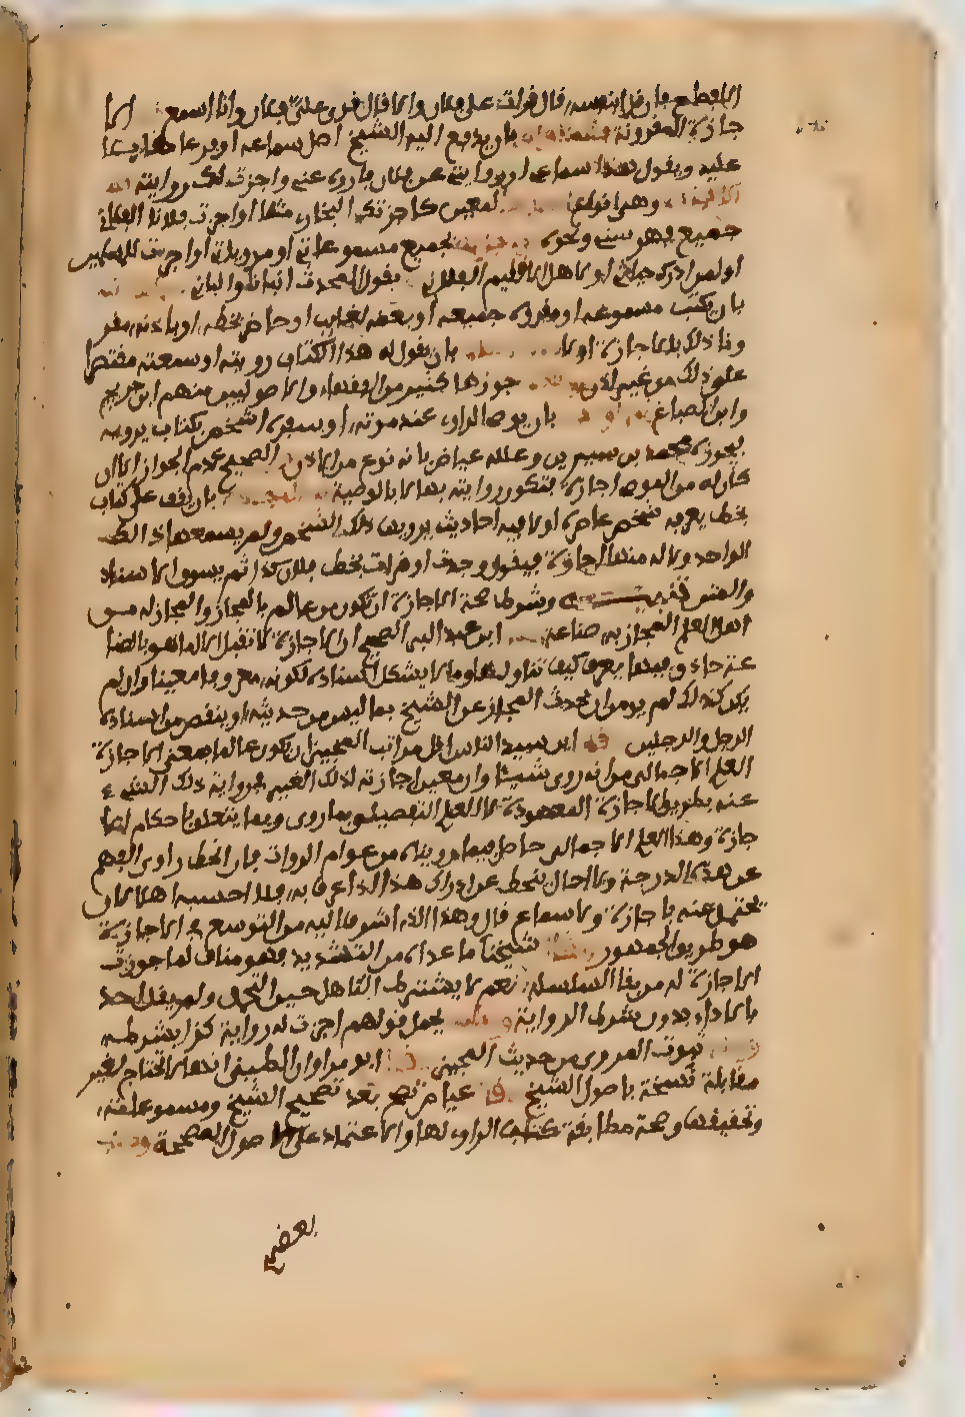 فان قرا بنفسه قال قرات على فلان والا قال قرئ على فلان وانا اسمع الا
جازة المقرونة بان يدفع اليه الشيخ اصل سماعه او فرعا مقابلا
عليه ويقول هذا سماعي او روايتي عن فلان فاروه عني واجزت لك روايته
وهي انواع لمعين كاجزتك البخاري مثلا او اجزت فلانا الفلاني
جميع فهرستي ونحوه بجميع مسموعاتي او مروياتي او اجزت للمسلمين
او لمن ادرك حياتي او لاهل الاقليم الفلاني يقول المحدث انبانا وانباني
بان يكتب مسموعه او مقروه جميعه او بعضه لغايب او حاضر بخطه او باذنه مقر
ونا ذلك بالاجازة او لا بان يقول له هذا الكتاب رويته او سمعته مقتصرا
على ذلك من غير اذن جوزها كثير من الفقهاء والاصوليين منهم ابن جريج
وابن الصباغ بان يوصي الراوي عند موته او سفره لشخص بكتاب يرويه
يجوزه محمد بن سيرين وعلله عياض بانه نوع من الاذن الصحيح عدم الجواز الا ان
كان له من الموصي اجازة فتكون روايته بها لا بالوصية بان يقف على كتاب
بخط يعرفه شخص عاصره او لا فيه احاديث يرويها ذلك الشخص ولم يسمعها ذا
الواجد ولا له منها اجازة فيقول وجدت او قرات بخط فلان كذا ثم يسوق الاسناد
والمتن وشرط صحة الاجازة ان تكون من عالم بالمجاز والمجاز له من
اهل العلم المجاز به صناعة ابن عبد البر الصحيح ان الاجازة لا تقبل الا لماهر بالصنا
عة حاذق فيها يعرف كيف تناولها وما لا يشكل اسناده لكونه معروفا معينا وان لم
يكن كذلك لم يومن ان يحدث المجاز عن الشيخ بما ليس من حديثه او ينقص من اسناده
الرجل والرجلين ابن سيد الناس اقل مراتب المجيز ان يكون عالما بمعنى الاجازة
العلم الاجمالي من انه روى شيئا وان معنى اجازته لذلك الغير في رواية ذلك الشيء
عنه بطريق الاجازة المعهودة لا العلم التفصيلي بما روى وبما يتعلق باحكام الا
جازة وهذا العلم الاجمالي حاصل فيما رويناه من عوام الرواة فان انحط راو في الفهم
عن هذه الدرجة ولا اخال ينحط عن ادراك هذا اذا عرف به فلا احسبه اهلا لان
يتحمل عنه باجازة ولا سماع قال وهذا الذي اشرت اليه من التوسع في الاجازة
هو طريق الجمهور شيخنا ما عداه من التشديد فهو مناف لما جوزت
الاجازة له من بقا السلسلة نعم لا يشترط التاهل حين التحمل ولم يقل احد
بالاداء بدون شرط الرواية يحمل قولهم اجزت له رواية كذا بشرطه
ثبوت المروي من حديث المجيز ابو مروان الطبني انها لا تحتاج لغير
مقابلة نسخة باصول الشيخ عياض تصح بعد تصحيح الشيخ ومسموعاته
وتحقيقها وصحة مطابقة كتاب الراوي لها والاعتماد على الاصول المصححة
بعضهم